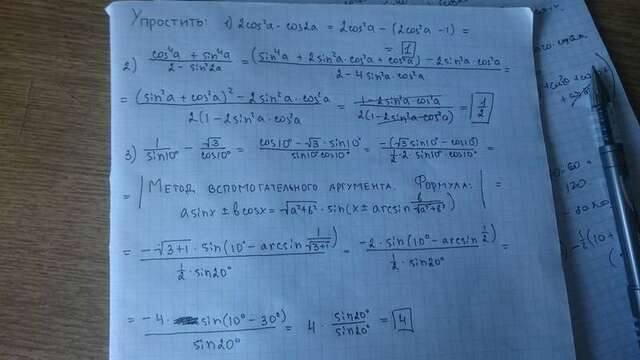 Упростить: 1) 2cos²a - cos2a = 2cos²a - (2cos²a - 1) =
= 1
2) (cos⁴a + sin⁴a)/(2 - sin²2a) = ((sin⁴a + 2sin²a·cos²a + cos⁴a) - 2sin²a·cos²a)/(2 - 4sin²a·cos²a) =
= ((sin²a + cos²a)² - 2sin²a·cos²a)/(2(1 - 2sin²a·cos²a) = (1 - 2sin²a·cos²a)/(2(1 - 2sin²a·cos²a)) = 1/2
3) 1/sin10° - √3/cos10° = (cos10° - √3·sin10°)/(sin10°cos10°) = (-(√3sin10° - cos10°))/(1/2·2·sin10°cos10°) =
= | Метод вспомогательного аргумента. Формула: | =
asinx ± bcosx = √(a²+b²)·sin(x ± arcsin b/√(a²+b²))
= (-√(3+1)·sin(10° - arcsin 1/√(3+1)))/(1/2·sin20°) = (-2·sin(10° - arcsin 1/2))/(1/2·sin20°) =
= (-4·sin(10° - 30°))/(sin20°) = 4·sin20°/sin20° = 4